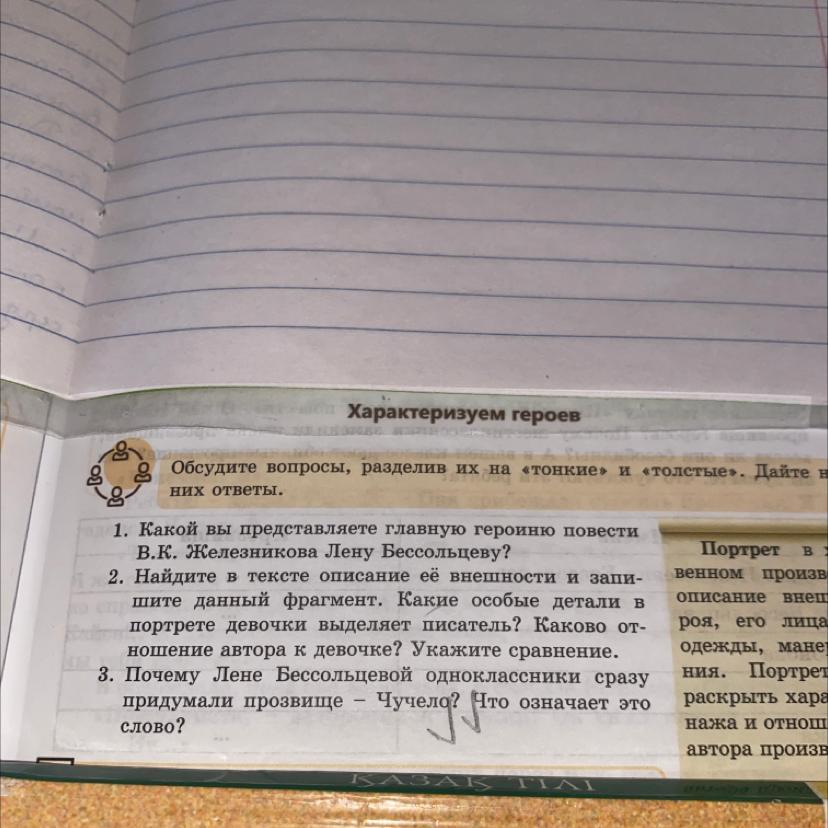 Характеризуем героев
Обсудите вопросы, разделив их на «тонкие» и «толстые». Дайте
них ответы.
1. Какой вы представляете главную героиню повести
В.К. Железникова Лену Бессольцеву?
2. Найдите в тексте описание её внешности и запи-
шите данный фрагмент. Какие особые детали в
портрете девочки выделяет писатель? Каково от-
ношение автора к девочке? Укажите сравнение.
3. Почему Лене Бессольцевой одноклассники сразу
придумали прозвище – Чучело? Что означает это
слово?
Портрет в
венном произв
описание внеш
роя, его лица
одежды, мане
ния. Портрет
раскрыть хара
нажа и отнош
автора произв
ҚАЗАҚ ТІЛІ